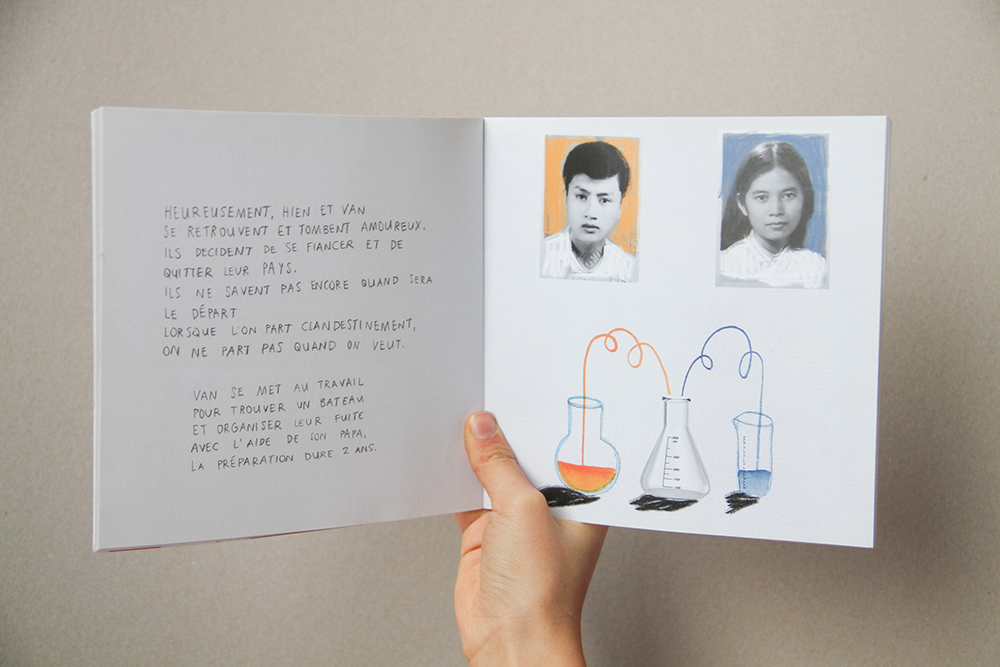 HEUREUSEMENT, HIEN ET VAN
SE RETROUVENT ET TOMBENT AMOUREUX.
ILS DECIDENT DE SE FIANCER ET DE
QUITTER LEUR PAYS.
ILS NE SAVENT PAS ENCORE QUAND SERA
LE DÉPART
LORSQUE L'ON PART CLANDESTINEMENT,
ON NE PART PAS QUAND ON VEUT.
VAN SE MET AU TRAVAIL
POUR TROUVER UN BATEAU
ET ORGANISER LEUR FUITE
AVEC L'AIDE DE SON PAPA,
LA PRÉPARATION DURE 2 ANS.